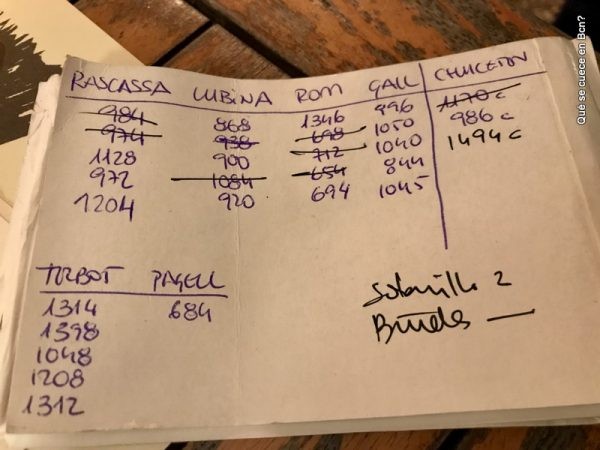 RASCASSA LUBINA ROM GALL CHULETON
984 868 1346 996 1170 c
974 938 698 1050 986 c
1128 900 712 1040 1494 c
972 1084 654 844
1204 920 694 1045
TURBOT PAGELL
1314 684
1398
1048
1208
1312
2
Que se cuece en Bcn?